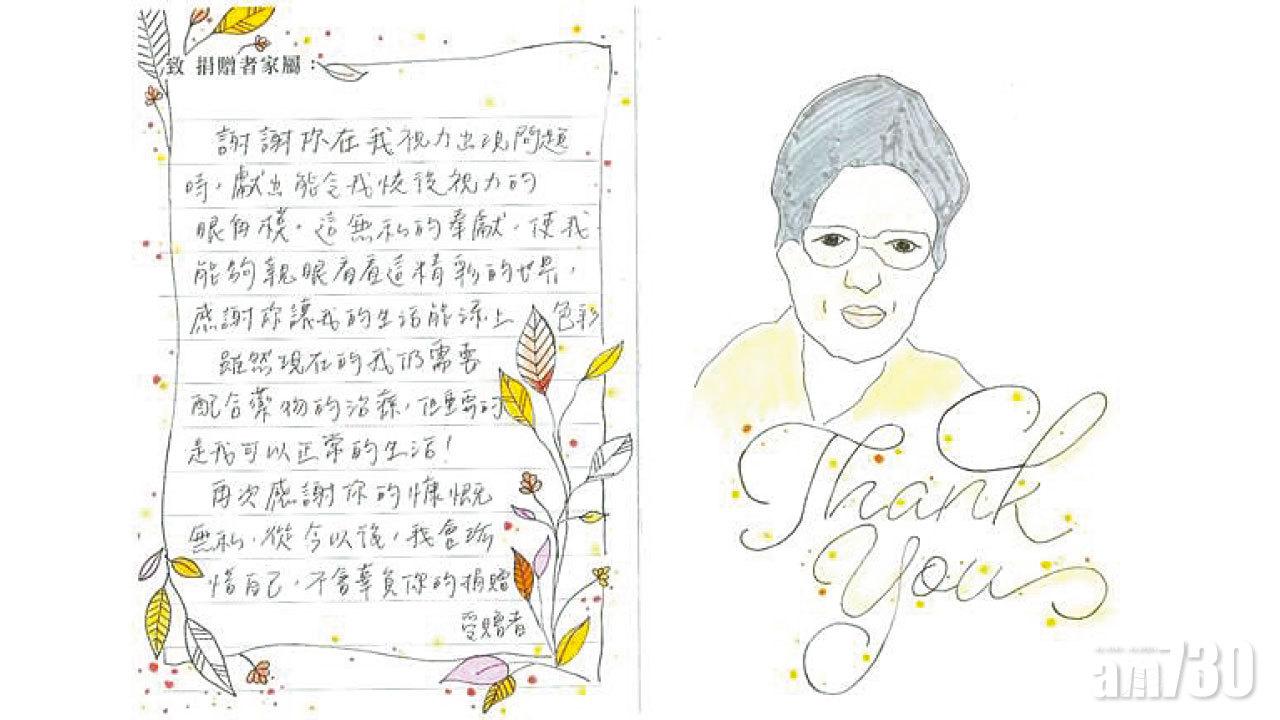 致 捐贈者家屬：
謝謝你在我視力出現問題
時，獻出能令我恢復視力的
眼角模，這無私的奉獻，使我
能夠親眼看看這精彩的世界，
感謝你讓我的生活能添上 色彩
雖然現在的我仍需要
配合藥物的治療，但重要的
是我可以正常的生活！
再次感謝你的慷慨
無私，從今以後，我會珍
惜自己，不會辜負你的捐贈
受贈者
Thank
You
am730